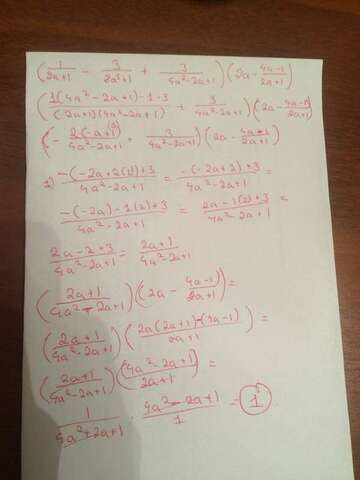 (1/2a+1 - 3/8a³+1 + 3/4a²-2a+1)(2a - 4a-1/2a+1)
(1(4a²-2a+1)-1·3/(2a+1)(4a²-2a+1) + 3/4a²-2a+1)(2a - 4a-1/2a+1)
(- 2(-a+1)/4a²-2a+1 + 3/4a²-2a+1)(2a - 4a-1/2a+1)
1) -(-2a+2(1))+3/4a²-2a+1 = -(-2a+2)+3/4a²-2a+1 =
-(-2a)-1(2)+3/4a²-2a+1 = 2a-1(2)+3/4a²-2a+1 =
2a-2+3/4a²-2a+1 = 2a+1/4a²-2a+1
(2a+1/4a²-2a+1)(2a - 4a-1/2a+1) =
(2a+1/4a²-2a+1)(2a(2a+1)-(4a-1)/2a+1) =
(2a+1/4a²-2a+1)(4a²-2a+1/2a+1) =
1/4a²-2a+1 · 4a²-2a+1/1 = 1